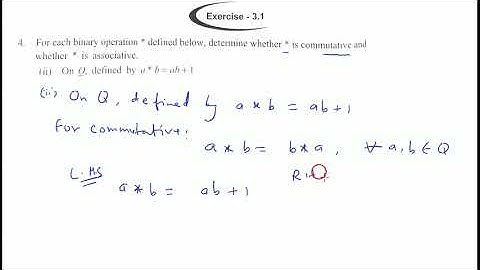 Exercise - 3.1
4. For each binary operation * defined below, determine whether * is commutative and
whether * is associative.
(ii) On Q, defined by a * b = ab + 1
(ii) On Q, defined by a * b = ab + 1
For commutative:
a * b = b * a, ∀ a, b ∈ Q
L.HS
a * b = ab + 1